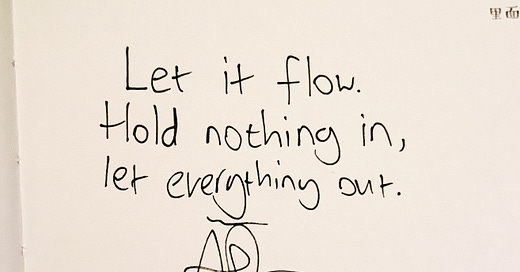 里面
Let it flow.
Hold nothing in,
let everything out.